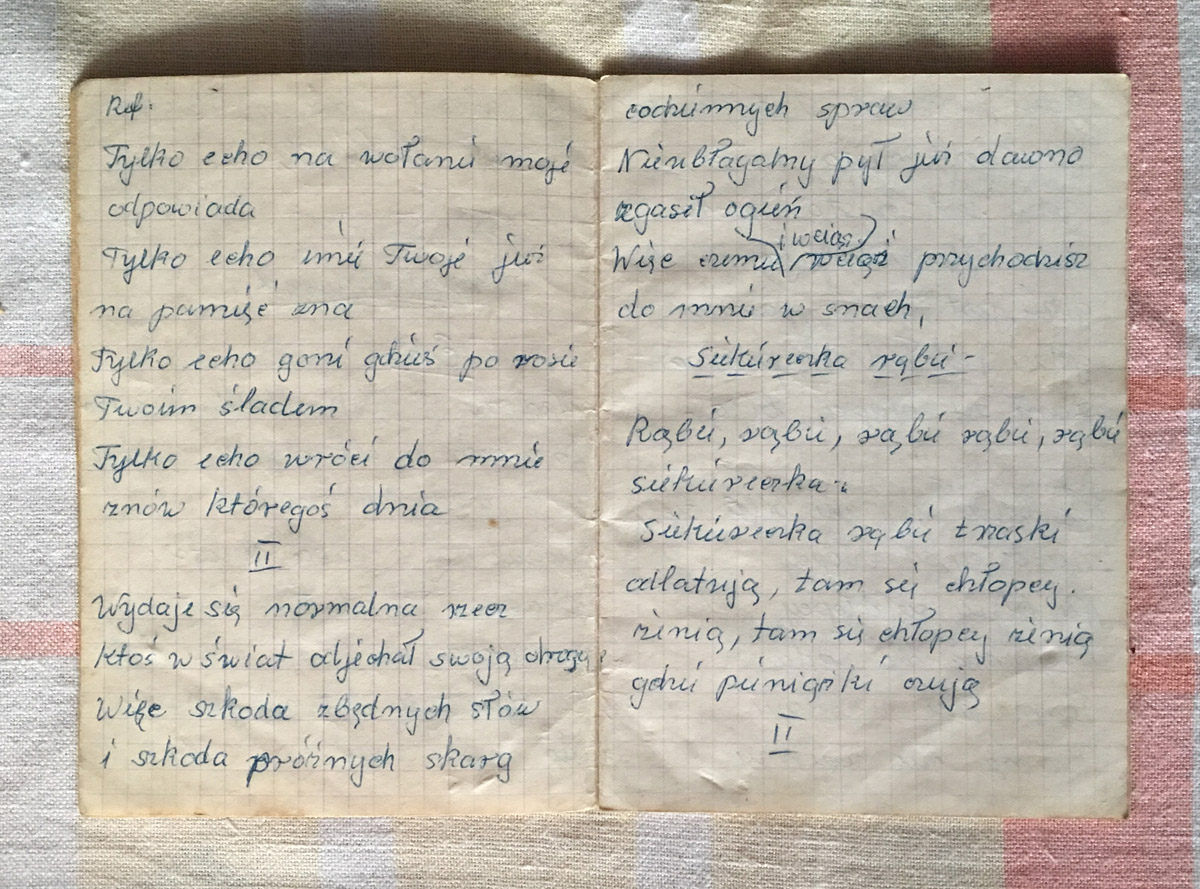 Ref.
Tylko echo na wołanie moje
odpowiada
Tylko echo imie Twoje już
na pamięć zna
Tylko echo goni gdzieś po rosie
Twoim śladem
Tylko echo wróci do mnie
znów któregoś dnia
II
Wydaje się normalna rzecz
Ktoś w świat odjechał swoją drogą
Więc szkoda zbędnych słów
i szkoda próżnych skarg
codziennych spraw
Nieubłagalny pył już dawno
zgasił ogień
i wciąż
Więc czemu wciąż przychodzisz
do mnie w snach,
Siekiereczka rąbie -
Rąbie, rąbie, rąbie rąbie, rąbie
siekiereczka.
Siekiereczka rąbie trzaski
odlatują, tam się chłopcy.
żenią, tam się chłopcy żenią
gdzie pieniążki czują
II